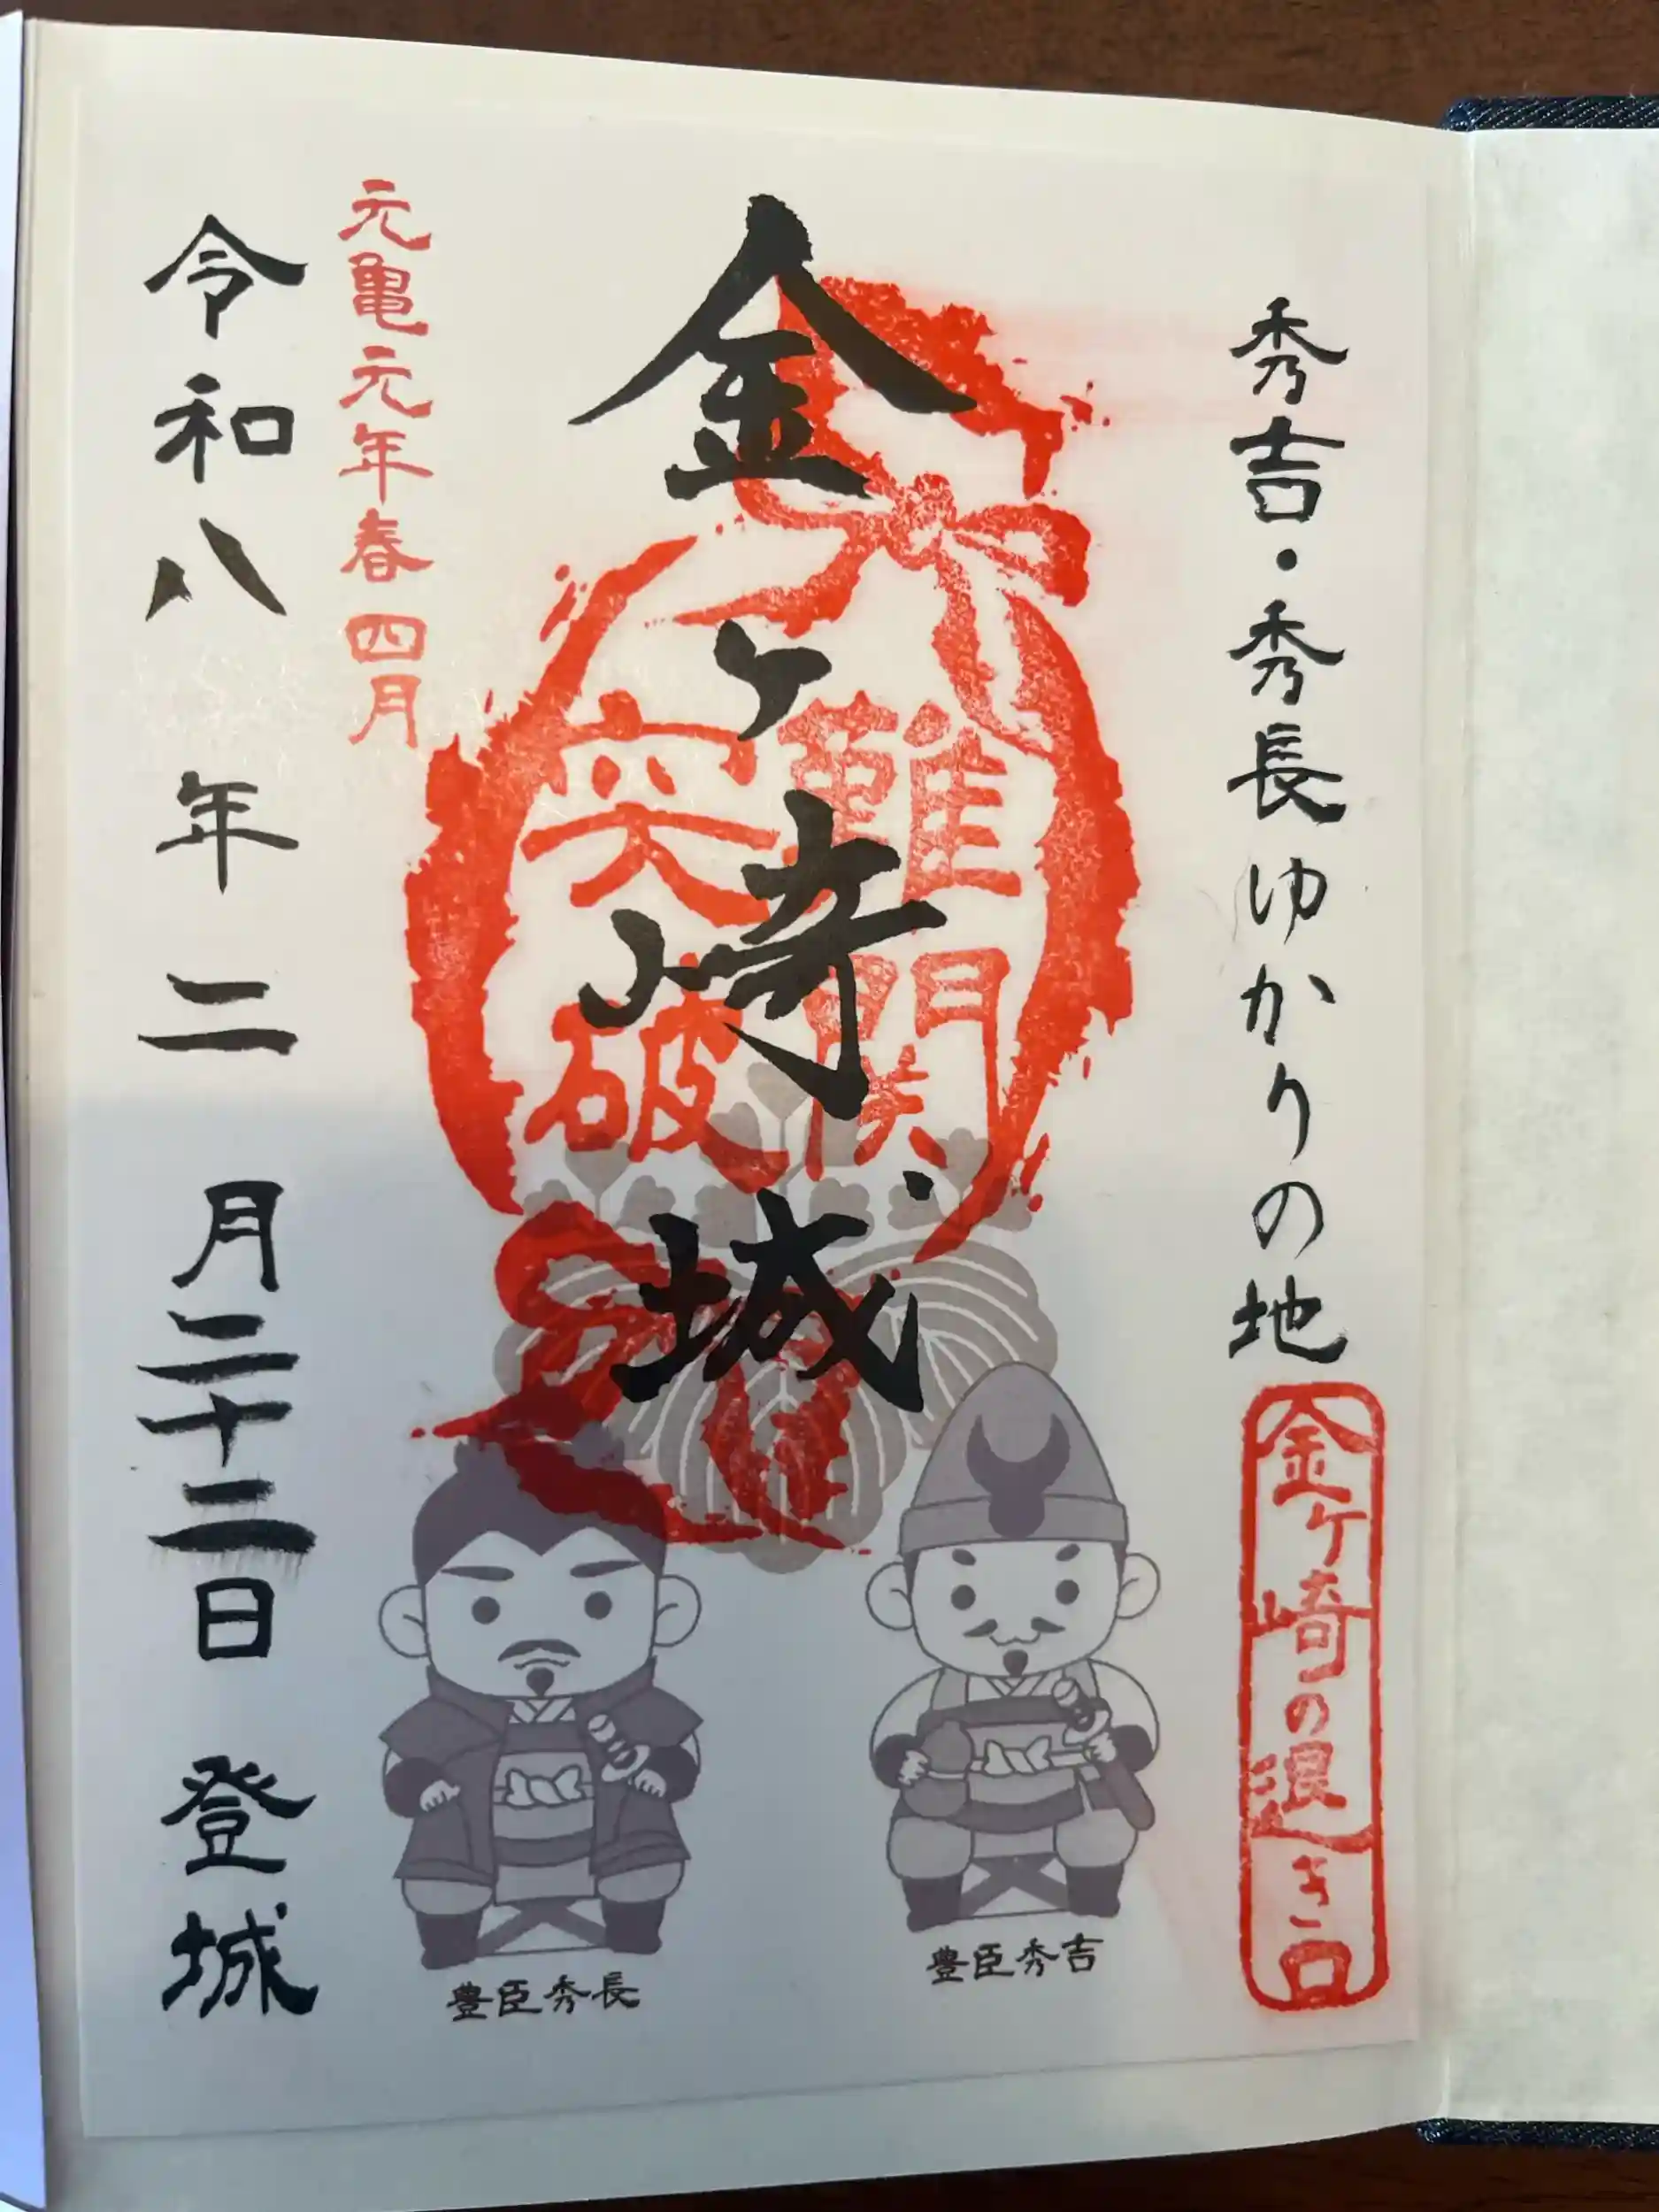 秀吉・秀長ゆかりの地
金ケ崎の退き口
金ヶ崎城
難関
突破
元亀元年春四月
令和八年二月二十二日 登城
豊臣秀吉
豊臣秀長